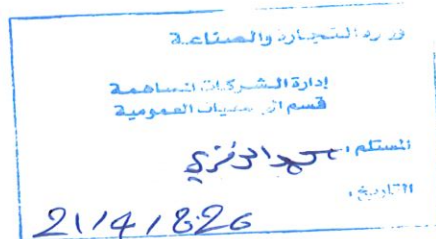 وزارة التجارة والصناعة
إدارة الشركات المساهمة
قسم الجمعيات العمومية
المستلم :
التاريخ :
21/4/2026